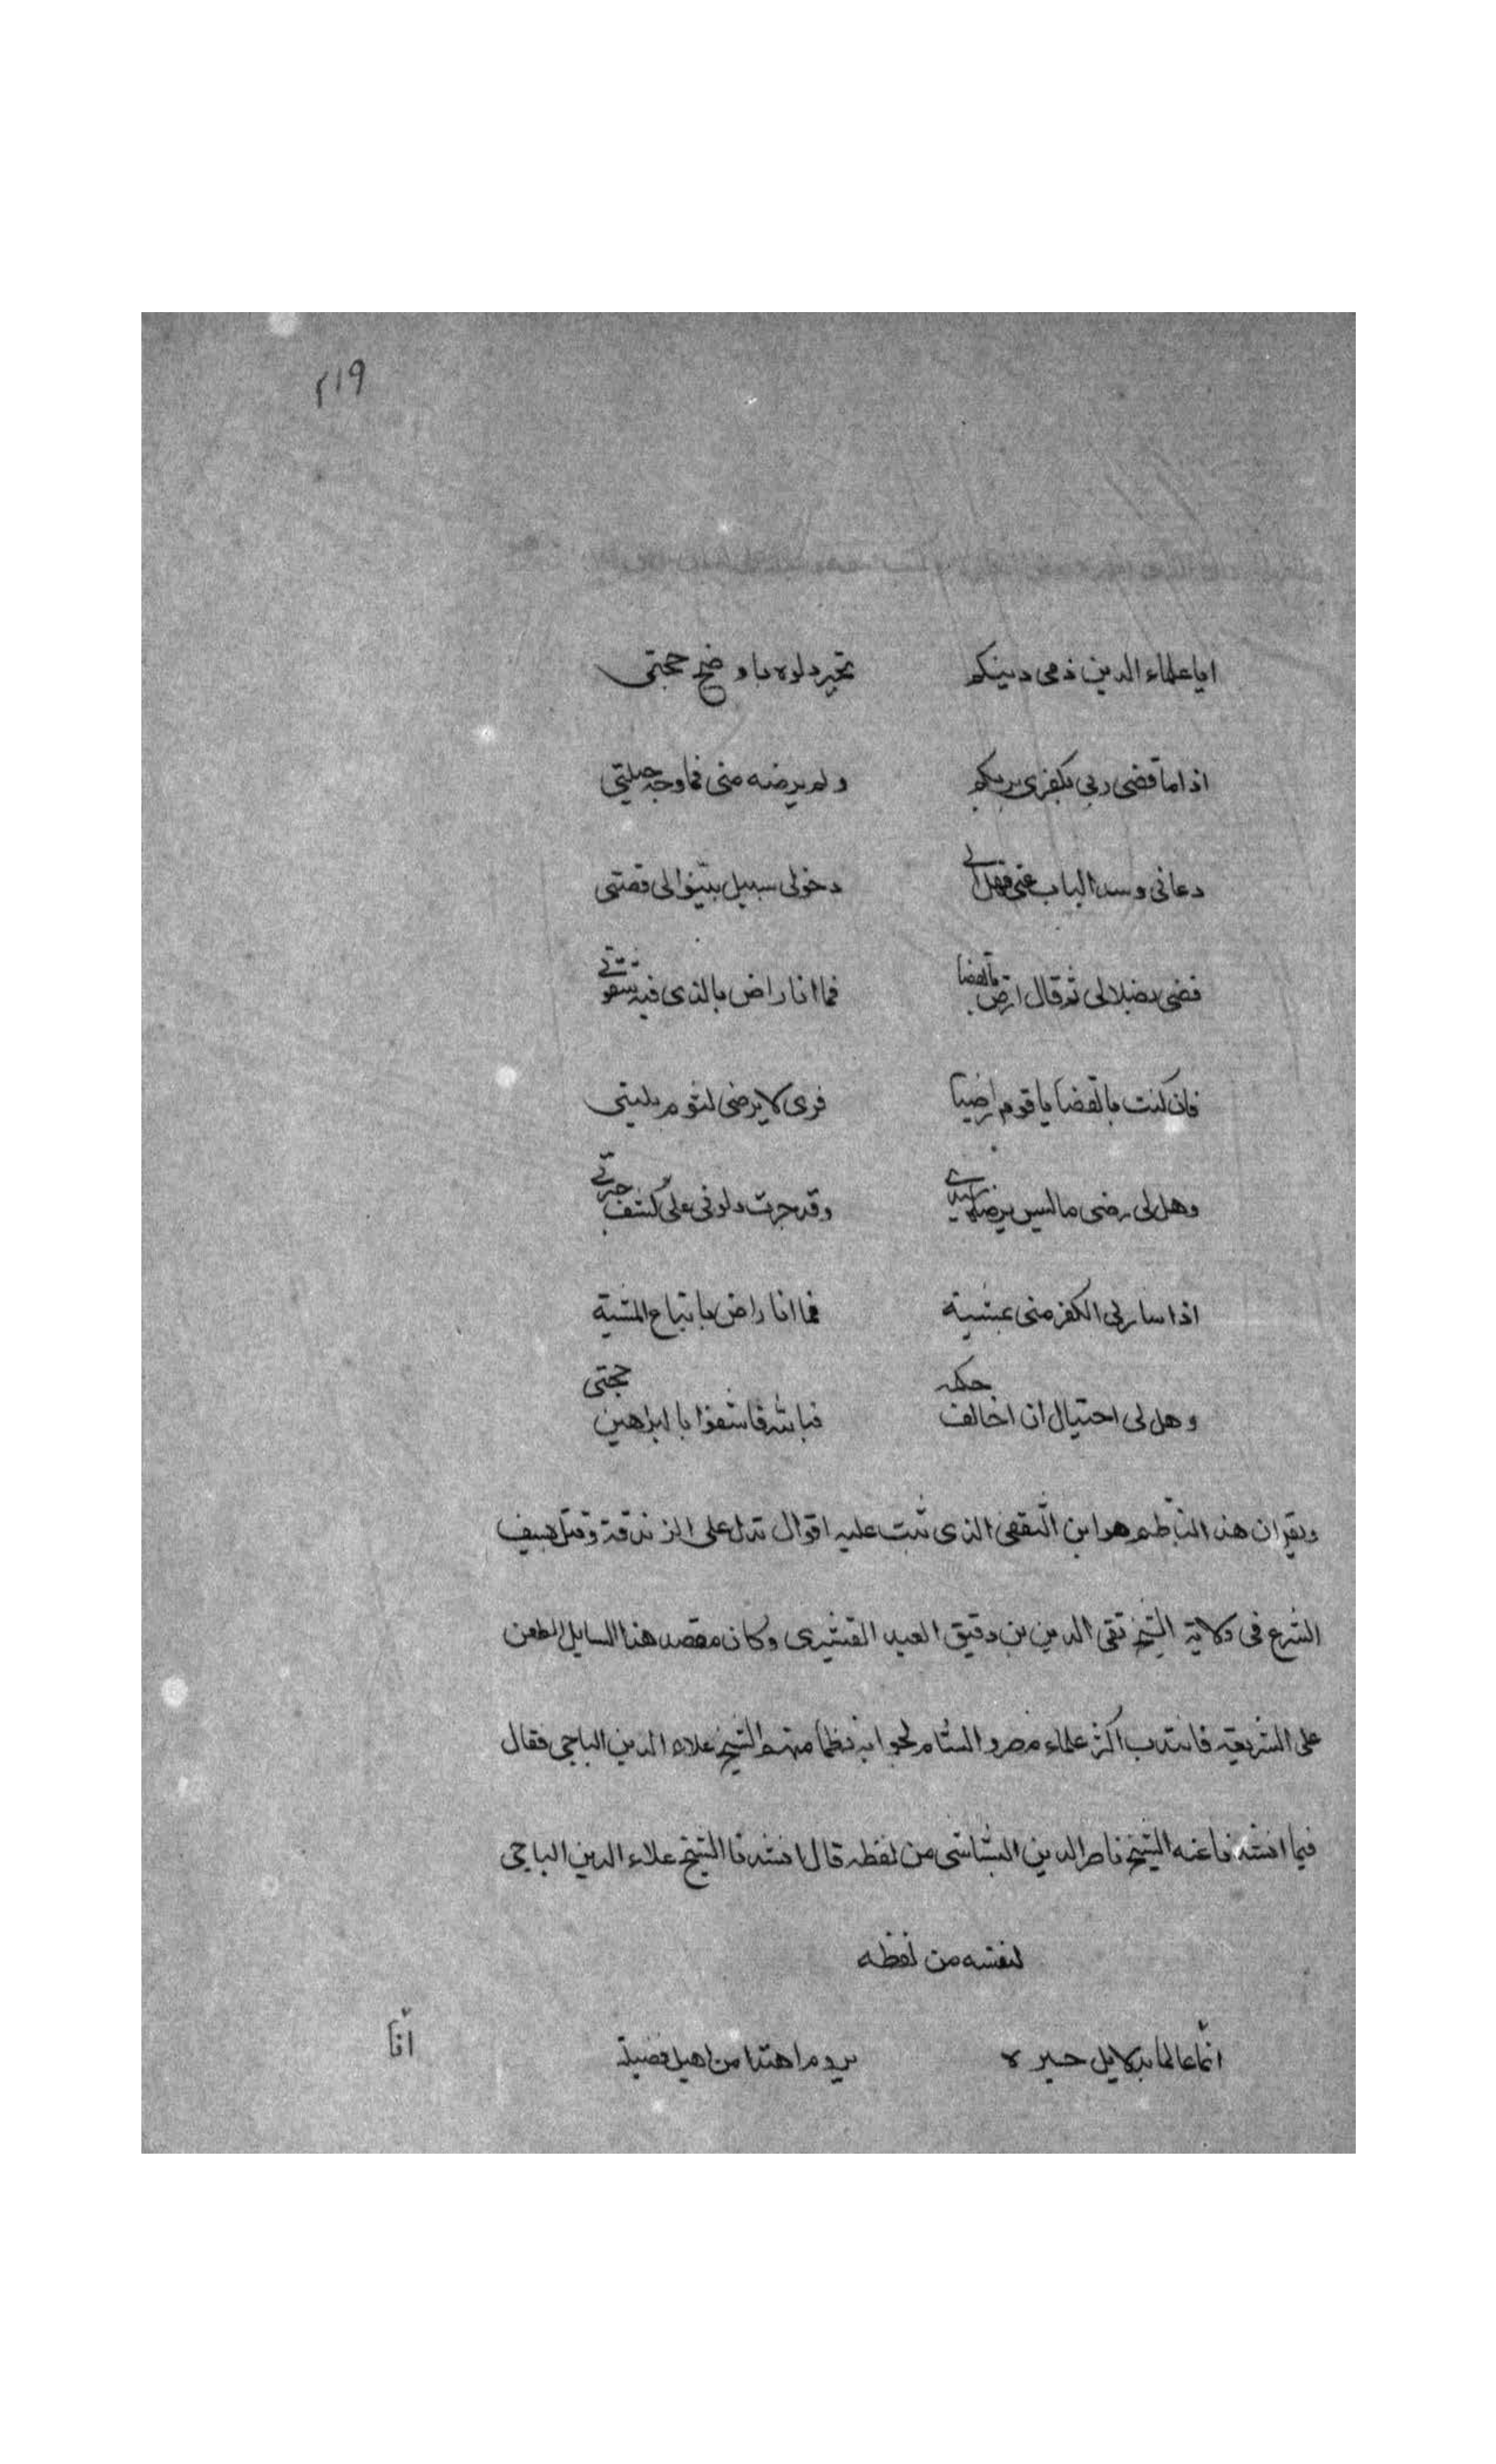 ٢١٩
ايا علماء الدين ذمي دينكم تحير دلوه باوضح حجتي
اذا ما قضى ربي بكفري بزعمكم ولم يرضه مني فما وجه حيلتي
دعاني وسد الباب عني فهل الى دخولي سبيل بينوا لي قصتي
قضى بضلالي ثم قال ارض بالقضا فما انا راض بالذي فيه شقوتي
فان كنت بالقضا يا قوم راضيا فربي لا يرضى لشوم بليتي
وهل لي رضى ما ليس يرضاه سيدي وقد حرت دلوني على كشف حيرتي
اذا شا ربي الكفر مني بمشية فما انا راض باتباع المشية
وهل لي احتيال ان اخالف حكمه فبالله فاشفوا بالبراهين حجتي
ويقر ان هذا الناظم هو ابن الثقفى الذى ثبت عليه اقوال تدل على الزندقة وقتل بسيف
الشرع فى ولاية الشيخ تقى الدين بن دقيق العيد القشيرى وكان مقصد هذا السايل الطعن
على الشريعة فانتدب اكثر علماء مصر والشام لجوابه نظما منهم الشيخ علاء الدين الباجى فقال
فيما انشدنا عنه الشيخ ناصر الدين الشاشى من لفظه قال انشدنا الشيخ علاء الدين الباجى
لنفسه من لفظه
ايا عالما بدلايل حيره يروم اهتدا من اهيل فضيلة